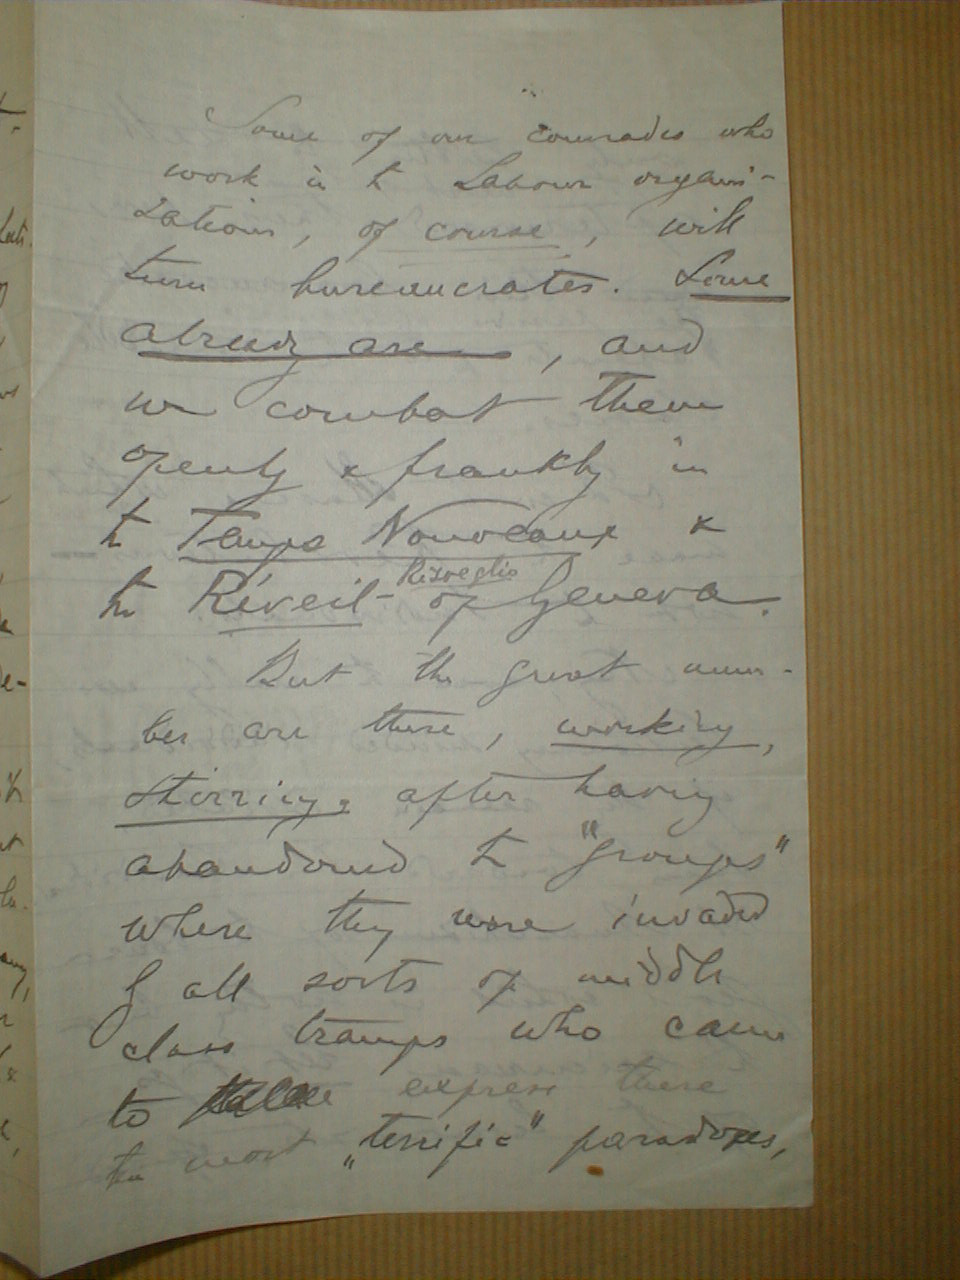 Some of our comrades who
work in th Labour organi-
zations, of course, will
turn bureaucrates. Some
already are, and
we combat them
openly & frankly in
th Temps Nouveaux &
Risveglio
th Réveil of Geneva.
But the great num-
ber are there, working,
stirring, after having
abandoned th "groups"
where they were invaded
by all sorts of middle
class tramps who came
to express there
the most „terrific" paradoxes,